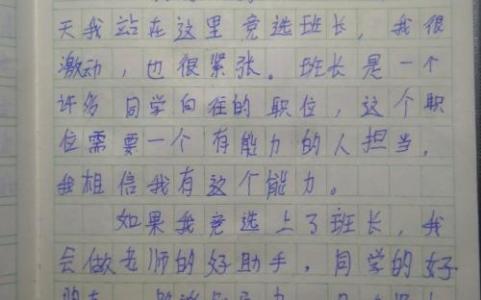 天我站在这里竞选班长，我很
激动，也很紧张。班长是一个
许多同学向往的职位，这个职
位需要一个有能力的人担当，
我相信我有这个能力。
如果我竞选上了班长，我
会做老师的好助手，同学的好